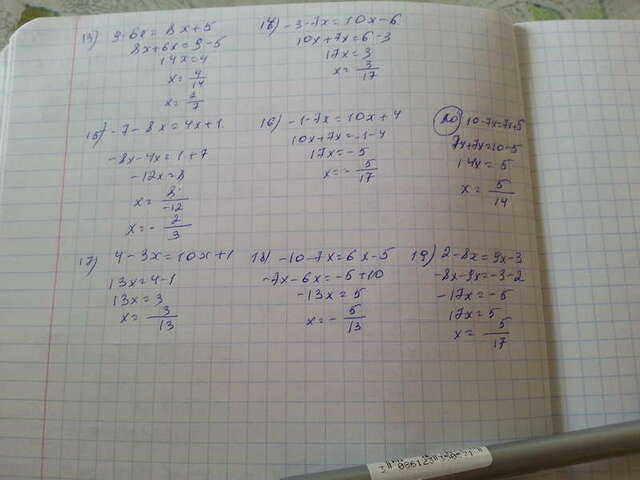 13) 9-6x = 8x+5
8x+6x = 9-5
14x = 4
x = 4/14
x = 2/7
14) -3-7x = 10x-6
10x+7x = 6-3
17x = 3
x = 3/17
15) -7-8x = 4x+1
-8x-4x = 1+7
-12x = 8
x = 8/-12
x = -2/3
16) -1-7x = 10x+4
10x+7x = -1-4
17x = -5
x = -5/17
20) 10-7x = 7x+5
7x+7x = 10-5
14x = 5
x = 5/14
17) 4-3x = 10x+1
13x = 4-1
13x = 3
x = 3/13
18) -10-7x = 6x-5
-7x-6x = -5+10
-13x = 5
x = -5/13
19) 2-8x = 9x-3
-8x-9x = -3-2
-17x = -5
17x = 5
x = 5/17